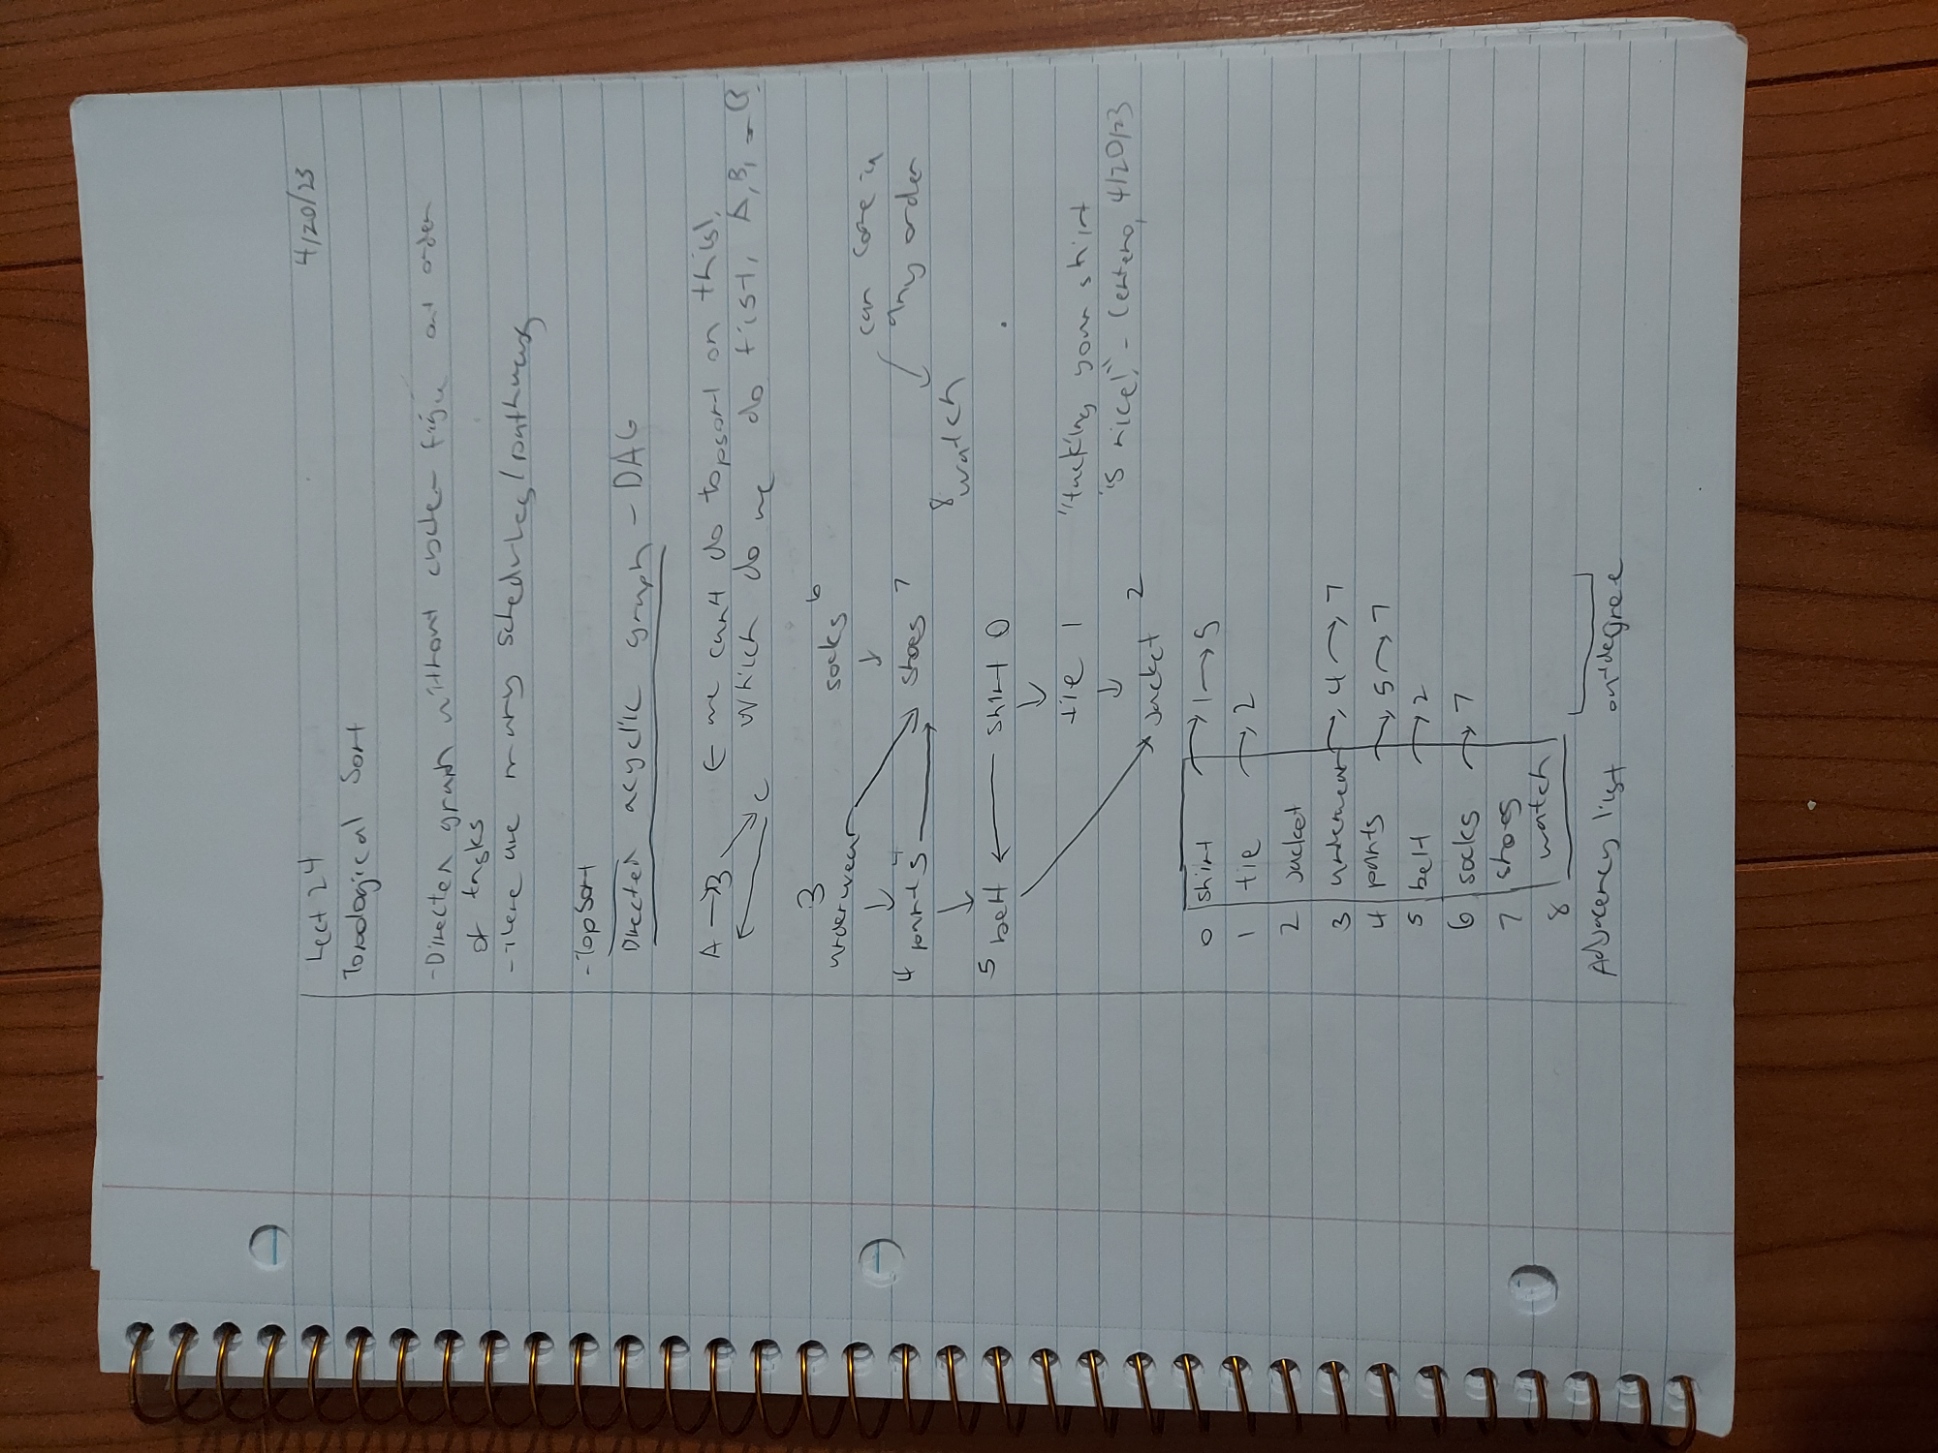 Lect 24 4/20/23
Topological Sort
-Directed graph without cycle- figure out order
of tasks
-There are many schedules/
-TopSort
Directed acyclic graph - DAG
A → B ← we can't do topsort on this),
C which do we do first, A, B, -C?
3 socks 6
underwear can come in
4 pants 4 shoes 7 any order
8 watch
5 belt ← shirt 0
tie 1 "tucking your shirt
is nice!" - Centeno, 4/20/23
jacket 2
0 shirt → 1 → 5
1 tie → 2
2 jacket
3 underwear → 4 → 7
4 pants → 5 → 7
5 belt → 2
6 socks → 7
7 shoes
8 watch
Adjacency list outdegree